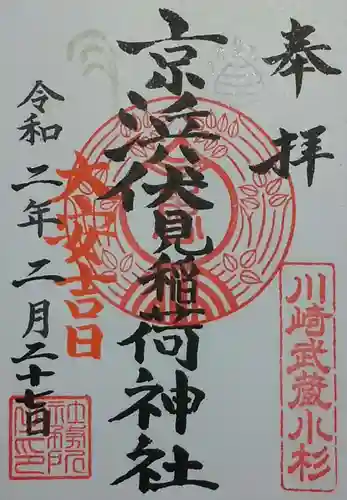 奉拝
川崎武蔵小杉
京浜伏見稲荷神社
大安吉日
令和二年二月二十七日